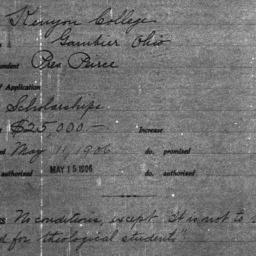 Kenyon College
Gambier Ohio
ndent Pres Peirce
f Application
Scholarships
$25,000.— Increase
ed May 11, 1906 do. promised
authorized MAY 15 1906 do. authorized
s No conditions, except "It is not to
d for theological students"